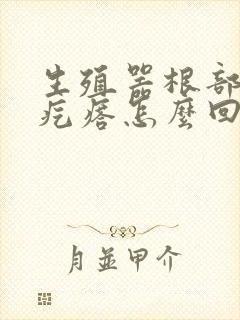 生殖器根部
疙瘩怎麼回
月並甲介